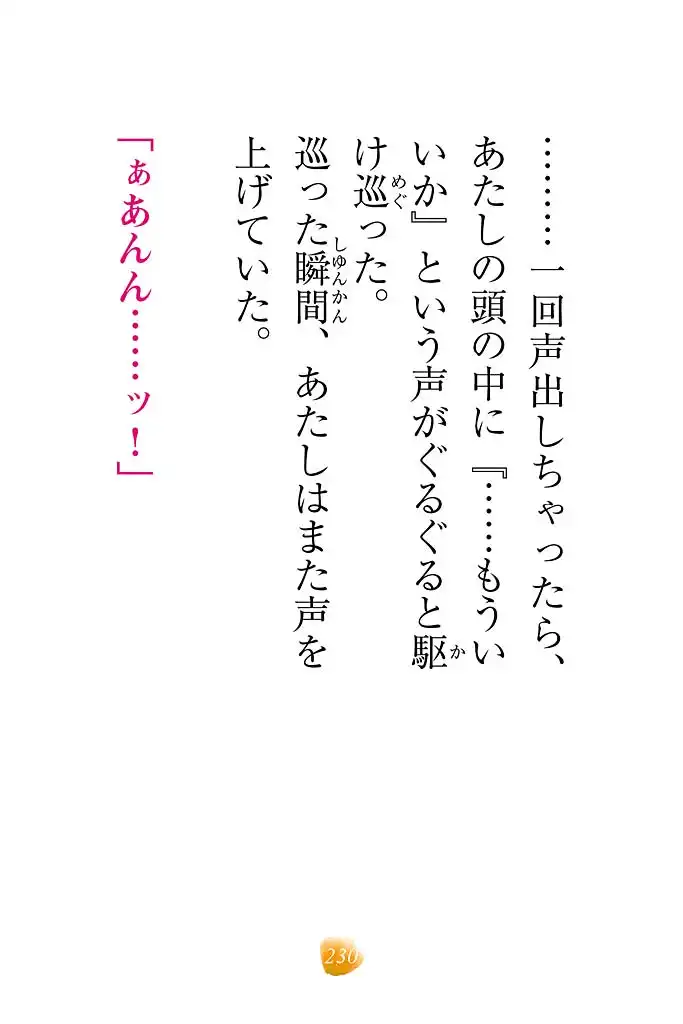 ………一回声出しちゃったら、
あたしの頭の中に『……もうい
いか』という声がぐるぐると駆
け巡った。
巡った瞬間、あたしはまた声を
上げていた。
「ぁあんん……ッ！」
か
めぐ
しゆんかん
230